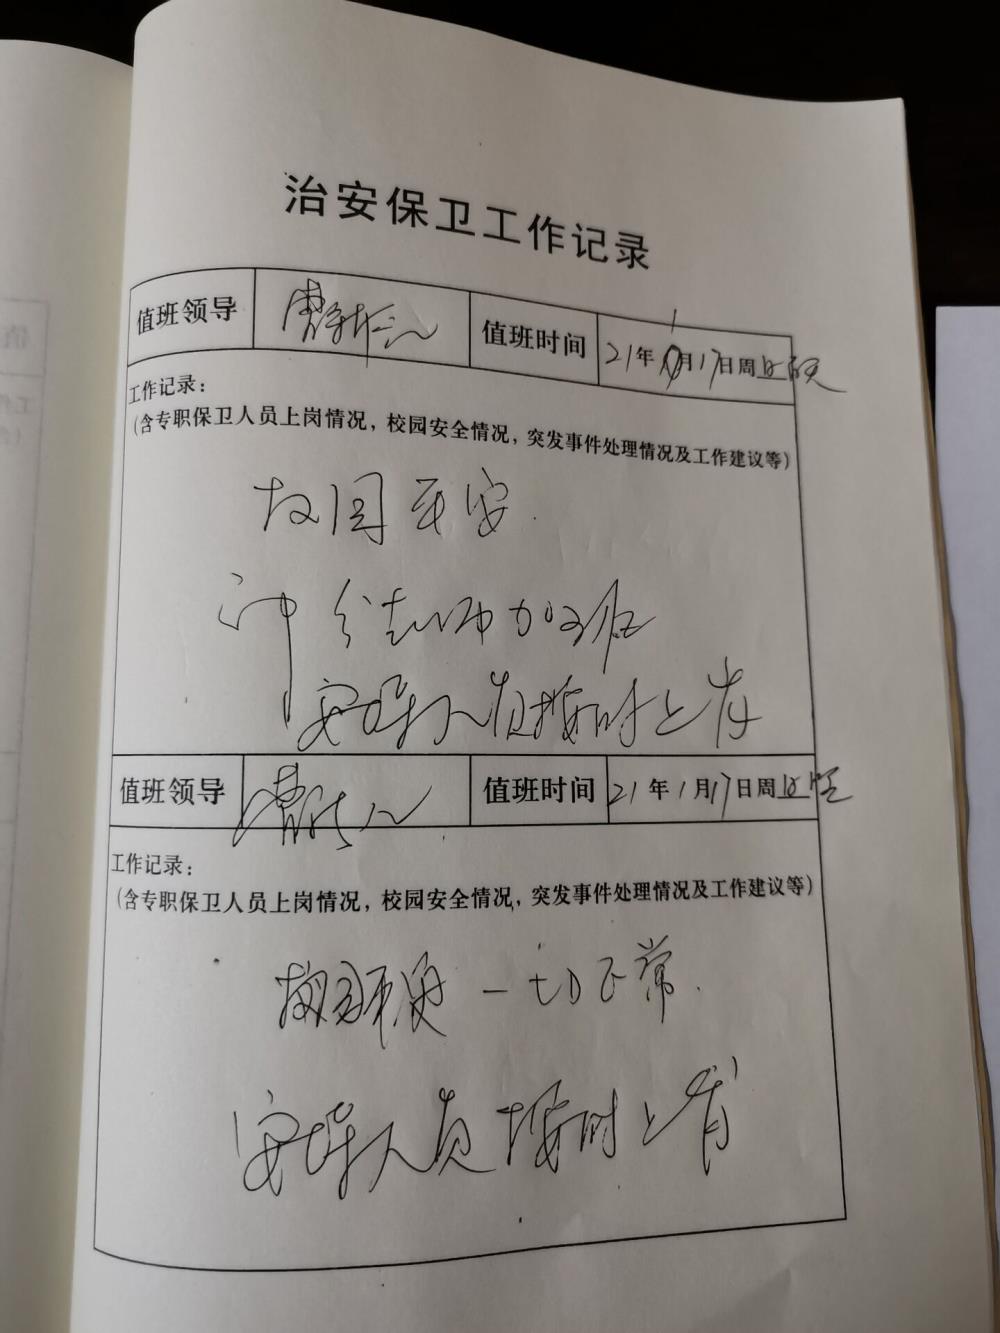 治安保卫工作记录
值班领导 值班时间 21年1月17日周日白天
工作记录：
（含专职保卫人员上岗情况，校园安全情况，突发事件处理情况及工作建议等）
校园平安
部分老师加班
安保人员按时上岗
值班领导 值班时间 21年1月17日周日晚上
工作记录：
（含专职保卫人员上岗情况，校园安全情况，突发事件处理情况及工作建议等）
校园平安 一切正常.
安保人员按时上岗